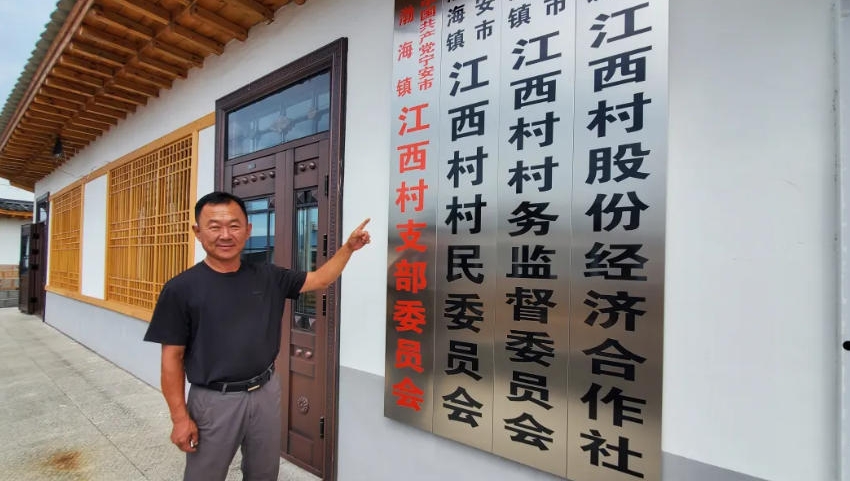 国共产党宁安市
渤海镇
江西村支部委员会
安市
海镇
江西村村民委员会
市
海镇
江西村村务监督委员会
江西村股份经济合作社